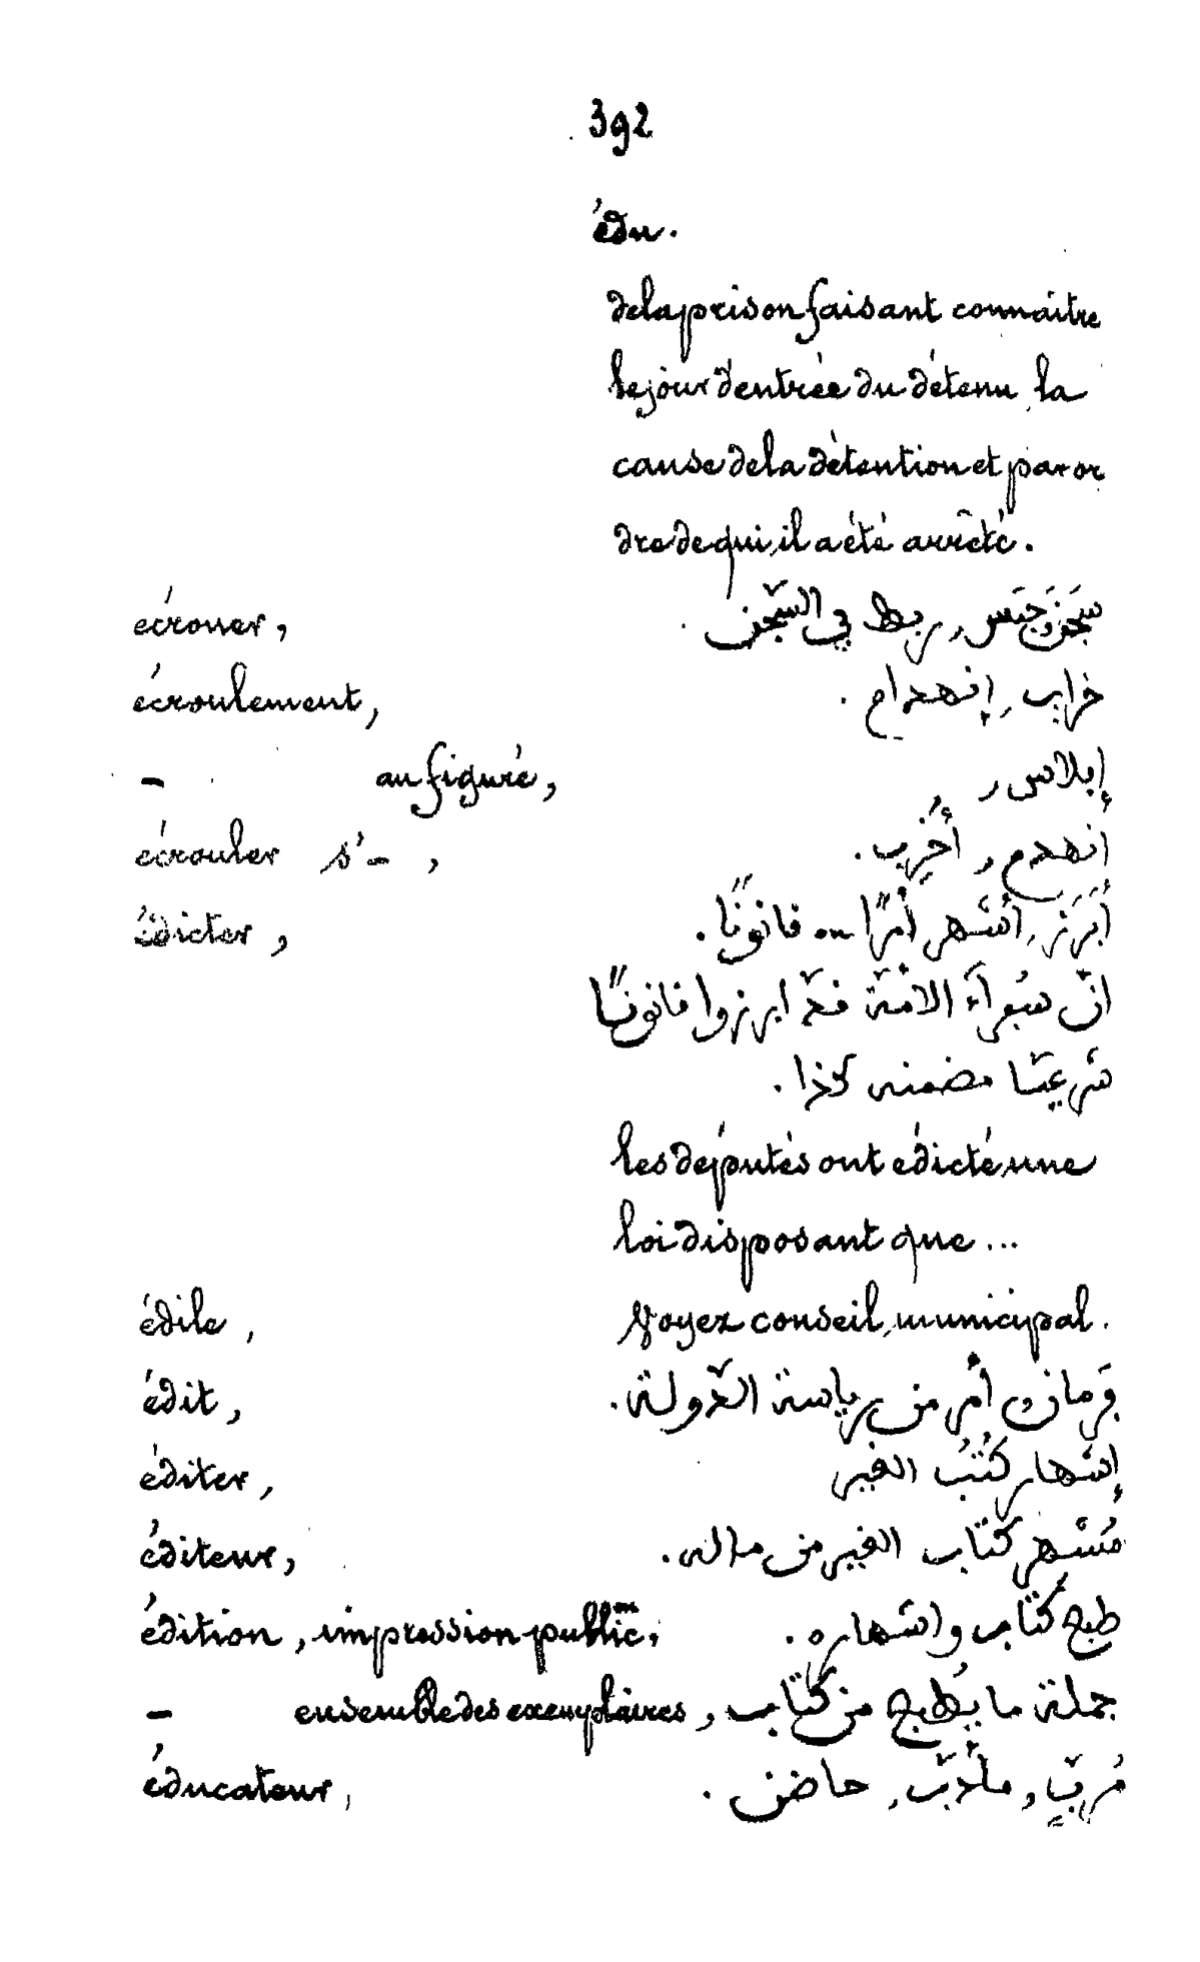 392
édu.
de la prison faisant connaître
le jour d'entrée du détenu, la
cause de la détention et par or
dre de qui, il a été arrêté.
écrouer, سَجَنَ, حَبَس, ربط في السّجن.
écroulement, خراب, إنهدام.
— au figuré, إبلاس,
écrouler s'—, انهدم, أُخْرِب.
édicter, أَبْرَزَ, أَشْهر أَمْرًا ... قانونًا.
انّ سُفرآءَ الامّة قد ابرزوا قانونًا
شرعيّا مضمنه كذا.
les députés ont édicté une
loi disposant que ...
édile, Voyez conseil municipal.
édit, فَرمان, أمر من رياسة الدّولة.
éditer, إشهار كُتُبُ الغير
éditeur, مُشْهر كتاب الغير من ماله.
édition, impression publicon, طبع كتاب واشهاره.
— ensemble des exemplaires, جملة ما يُطبع من كتاب
éducateur, مُربٍّ, مأدّب, حاضن.